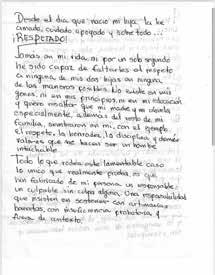 Desde el día que nació mi hija la he
amado, cuidado apoyado y sobre todo...
¡RESPETADO!
Jamás en mi vida, ni por un solo segundo
he sido capaz de faltarles al respeto
a ninguna de mis dos hijas en ninguna
de las maneras posibles. No existe en mis
genes, ni en mis principios, ni en mi educación
y quiero resaltar que mi madre y mi abuela
especialmente, además del resto de mi
familia, sembraron en mí, con el ejemplo
el respeto, la honradez, la disciplina y demás
valores que me hacen ser un hombre
intachable.
Todo lo que rodea este lamentable caso
lo único que realmente prueba, es que
han fabricado de mi persona un responsable
un culpable sin culpa alguna. Una responsabilidad
que insisten en sostener con artimañas
baratas, con insuficiencia probatoria, y
fuera de contexto.